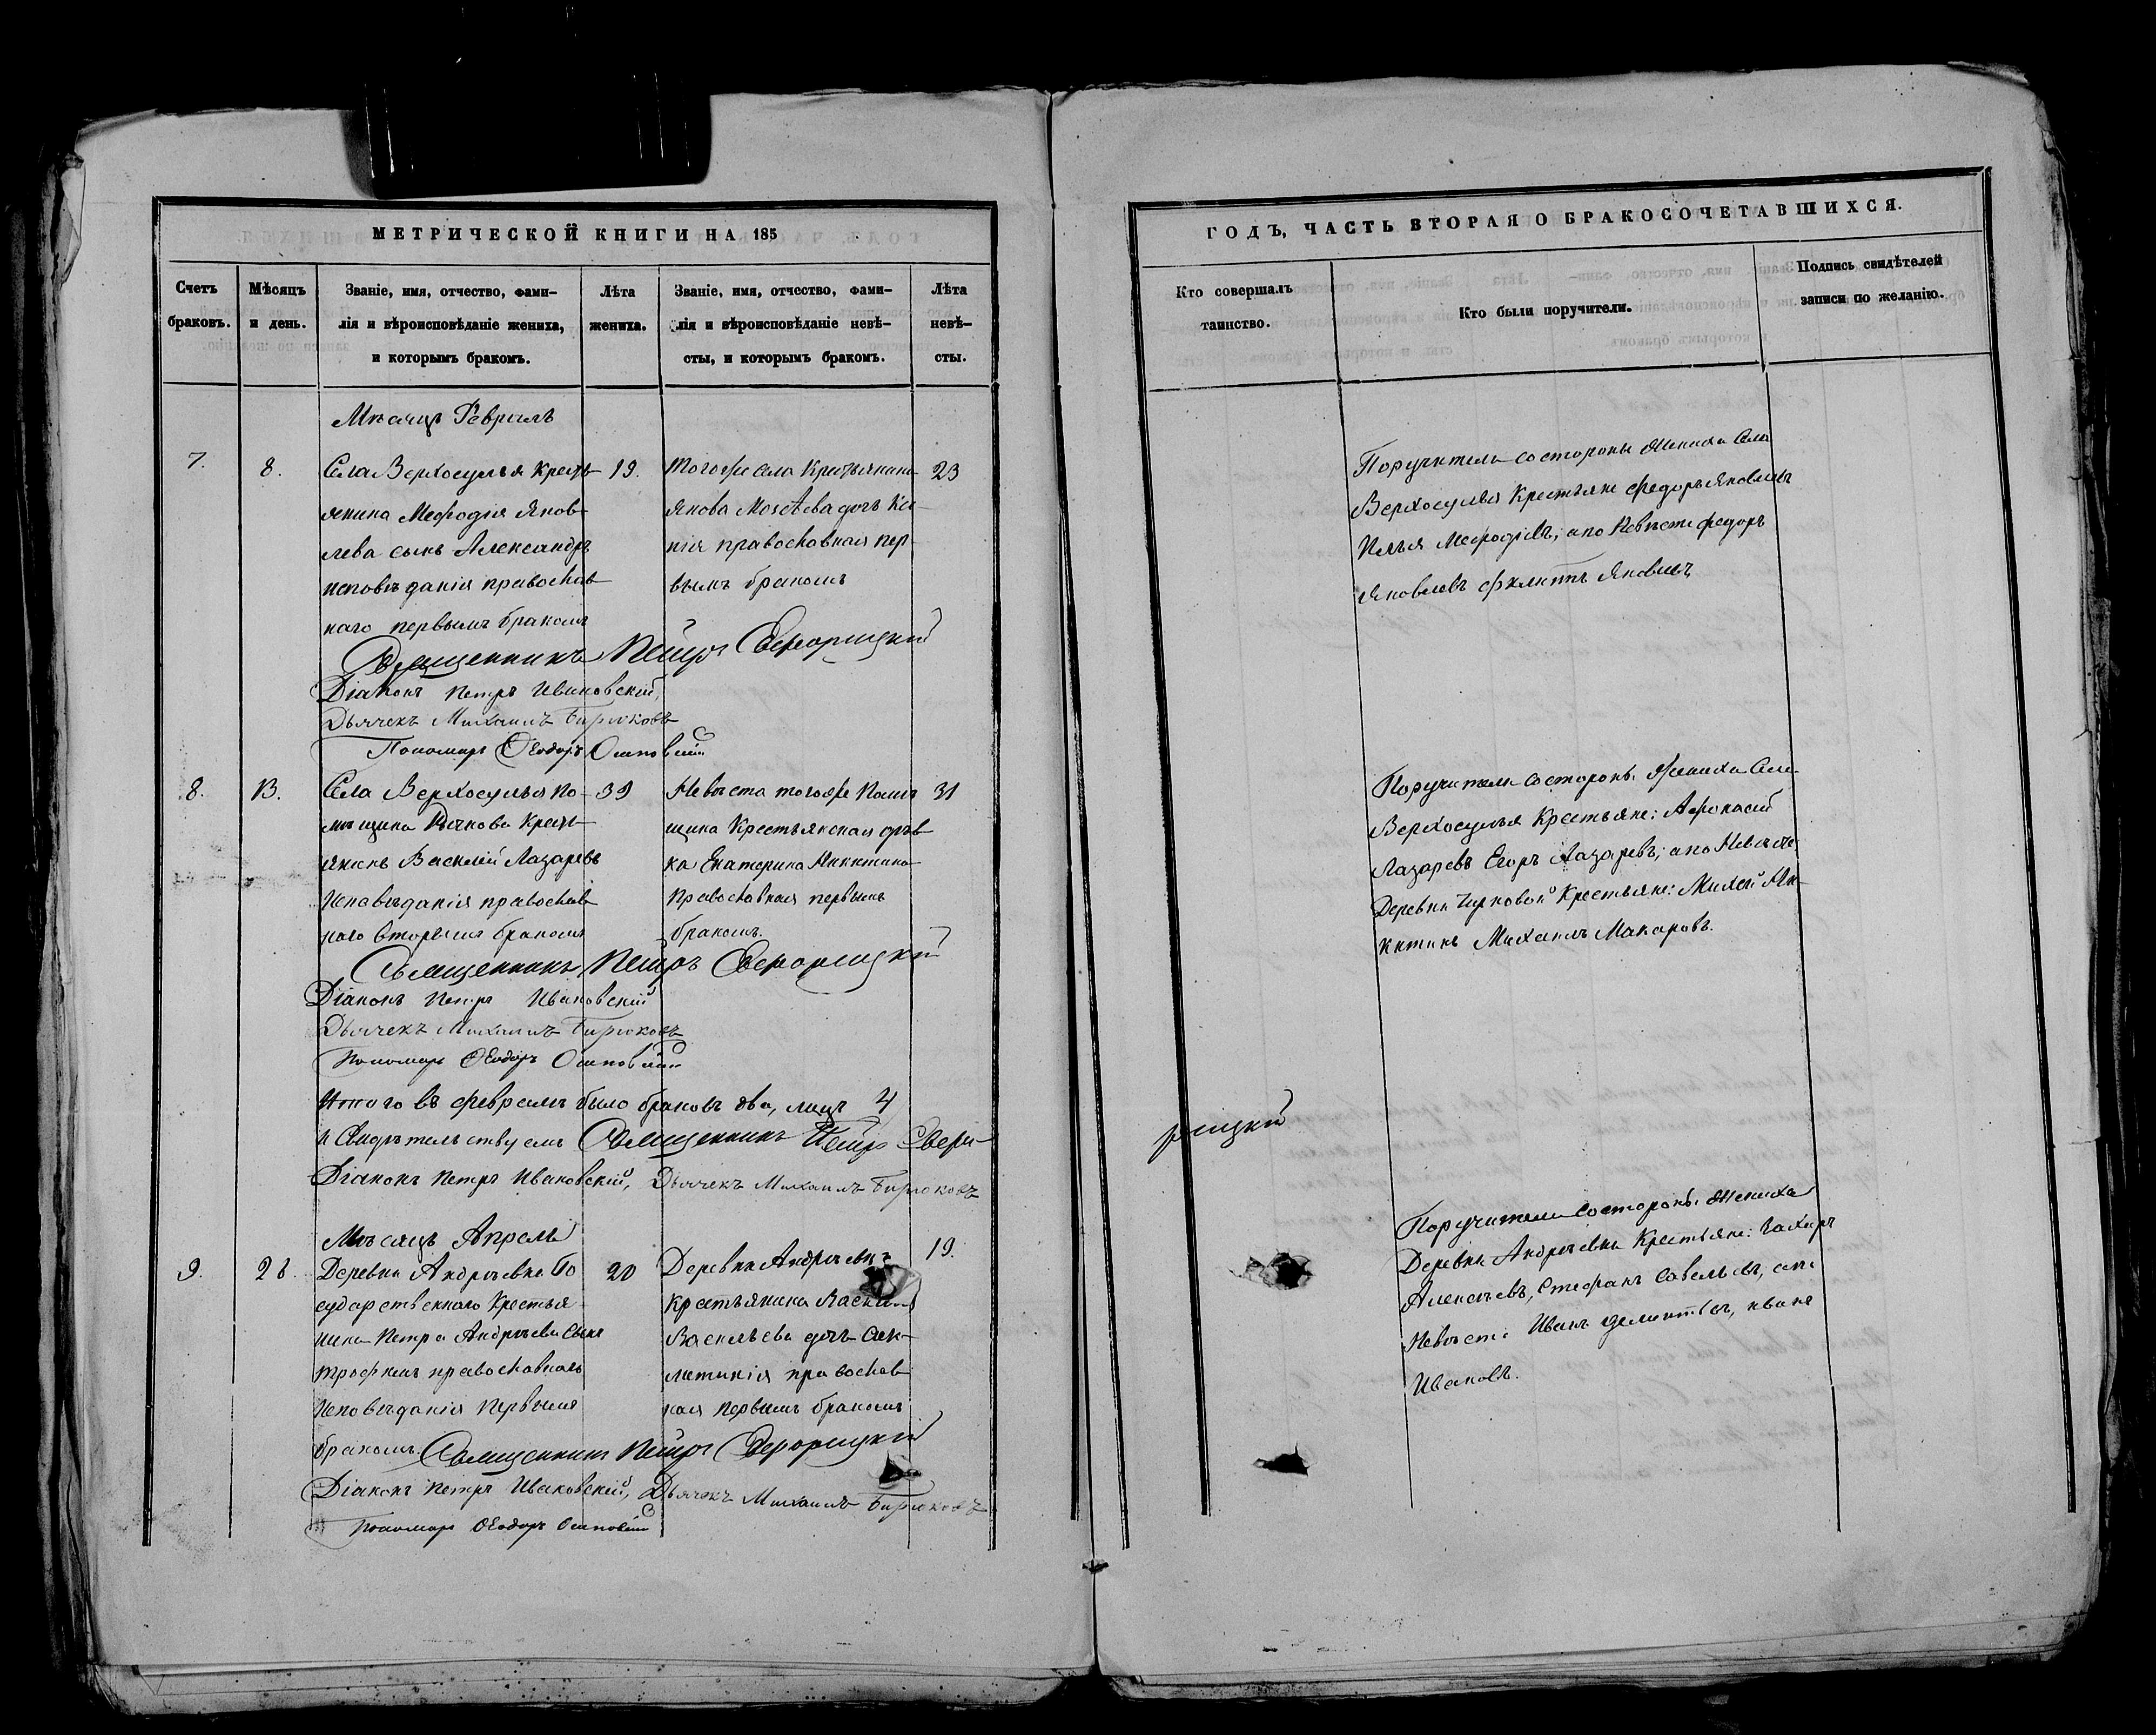 МЕТРИЧЕСКОЙ КНИГИ НА 185
Счетъ браковъ.
Мѣсяцъ и день.
Званіе, имя, отчество, фами-
лія и вѣроисповѣданіе жениха,
и которымъ бракомъ.
Лѣта жениха.
Званіе, имя, отчество, фами-
лія и вѣроисповѣданіе невѣ-
сты, и которымъ бракомъ.
Лѣта невѣ-
сты.
Мѣсяцъ Февраль
7.
8.
Села Верхосулья крестъ-
янина Мефодія Яков-
лева сынъ Александръ
исповѣданія православ-
наго первымъ бракомъ
19.
Тогоже села Крестьянина
Якова дочь
нія православная пер-
вымъ бракомъ
23
Священникъ Петръ
Діаконъ Петръ Ивановскій,
Дьячекъ Михаилъ Бирюковъ
Пономарь Ѳеодоръ
8.
13.
Села Верхосулья По-
мѣщика кресть-
янинъ Василій Лазаревъ
Исповѣданія православ-
наго вторымъ бракомъ
39
Невѣста тогоже Помѣ-
щика Крестьянская дѣв-
ка Екатерина Никитина
Православная первымъ
бракомъ.
31
Священникъ Петръ
Діаконъ Петръ Ивановскій
Дьячекъ Михаилъ Бирюковъ
Пономарь Ѳеодоръ
Итого въ февралѣ было браковъ два, лицъ 4
и Свидѣтельствуемъ Священникъ Петръ
Діаконъ Петръ Ивановскій, Дьячекъ Михаилъ Бирюковъ
Мѣсяцъ Апрель
9.
28.
Деревни Андреевки Го-
сударственнаго Крестья-
нина Петра Андреева сынъ
Трофимъ православнаго
Исповѣданія первымъ
бракомъ.
20
Деревни Андреевки
Крестьянина
Васильева дочь Сик-
литинія православ-
ная первымъ бракомъ
19.
Священникъ Петръ
Діаконъ Петръ Ивановскій, Дьячекъ Михаилъ Бирюковъ
Пономарь Ѳеодоръ
ГОДЪ, ЧАСТЬ ВТОРАЯ О БРАКОСОЧЕТАВШИХСЯ.
Кто совершалъ
таинство.
Кто были поручители.
Подпись свидѣтелей
записи по желанію.
Поручители состороны Жениха Села
Верхосулья Крестьяне Федоръ Яковлевъ
Илья Мефодіевъ; апо Невѣсте федоръ
Яковлевъ Яковлевъ
Поручители состороны Жениха Села
Верхосулья Крестьяне: Афонасій
Лазаревъ Егоръ Лазаревъ; апо Невѣсте
Деревни Чирковой Крестьяне: Михей Ни-
китинъ Михаилъ Макаровъ.
рицкій
Поручители состороны Жениха
Деревни Андреевки Крестьяне: Захаръ
Алексѣевъ, Стефанъ Савельевъ, апо
Невѣсте Иванъ, иване
Ивановъ.